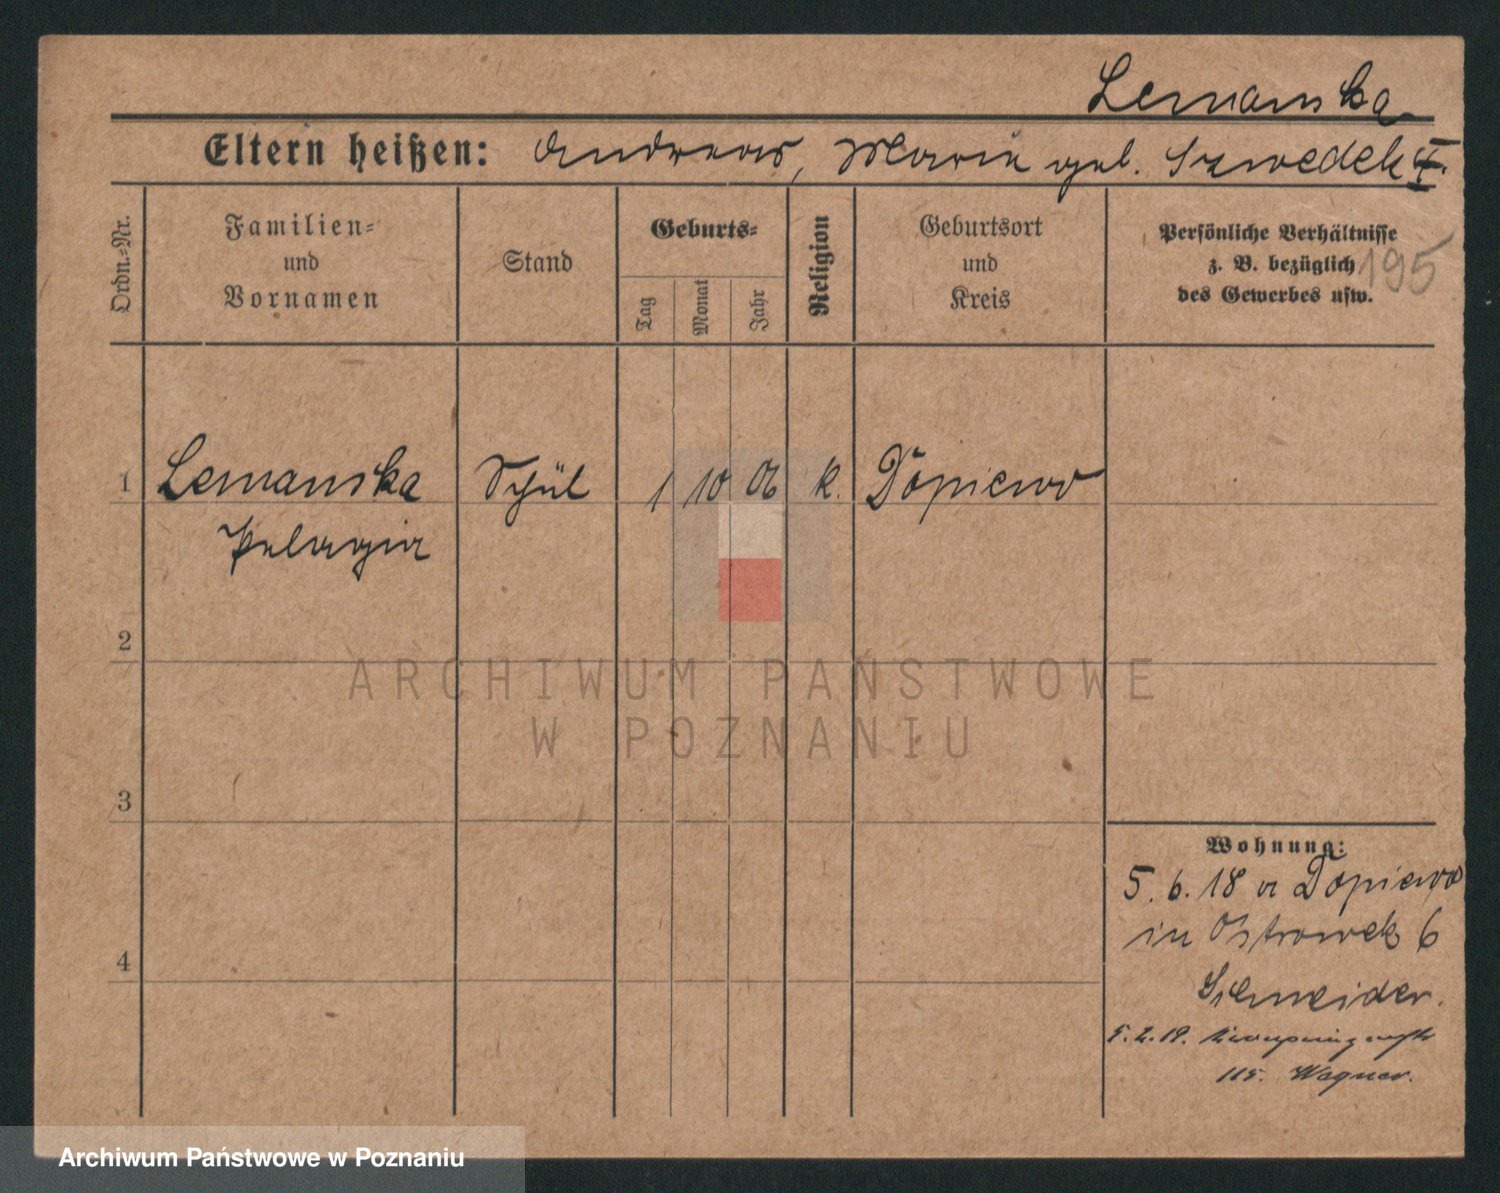 Lemanska
Eltern heißen: Andreas, Marie geb. Szwedek
Ordn.-Nr.
Familien-
und
Vornamen
Stand
Geburts-
Tag
Monat
Jahr
Religion
Geburtsort
und
Kreis
Persönliche Verhältnisse
z. B. bezüglich
des Gewerbes usw.
195
1 Lemanska Schül 1 10 06 k. Dopiewo
Pelagia
2
3
4
Wohnung:
5. 6. 18 a Dopiewo
in Ostrowek 6
Schneider.
5. 2. 19.
115. Wagner.
ARCHIWUM PAŃSTWOWE
W POZNANIU
Archiwum Państwowe w Poznaniu